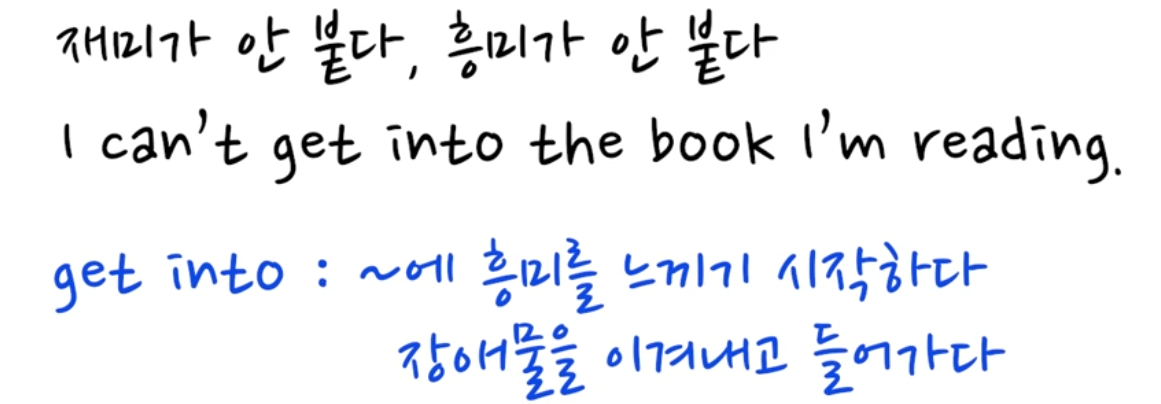 재미가 안 붙다, 흥미가 안 붙다
I can't get into the book I'm reading.
get into : ~에 흥미를 느끼기 시작하다
장애물을 이겨내고 들어가다